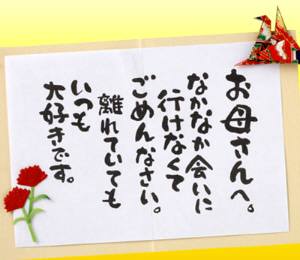 お母さんへ。
なかなか会いに
行けなくて
ごめんなさい。
離れていても
いつも
大好きです。